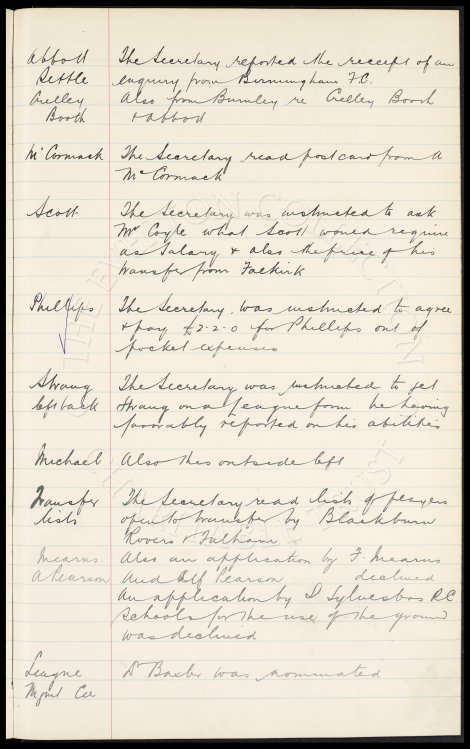 Abbott The Secretary reported the receipt of an
Settle enquiry from Birmingham F.C.
Crelley Also from Burnley re Crelley Booth
Booth & Abbott
McCormack The Secretary read postcard from A
McCormack
Scott The Secretary was instructed to ask
Mr Coyle what Scott would require
as Salary & also the price of his
transfer from Falkirk
Phillips The Secretary was instructed to agree
& pay £2.2.0 for Phillips out of
pocket expenses
Strang The Secretary was instructed to get
left back Strang on a league form he having
favorably reported on his abilities
Michael Also this outside left
Transfer The Secretary read lists of players
lists open to transfer by Blackburn
Rovers & Fulham
Mearns Also an application by F. Mearns
A Pearson And Alf Pearson declined
An application by S Sylvesters RC
Schools for the use of the ground
was declined
League Dr Baxter was nominated
Mgmt Cee
THE EVERTON COLLECTION
TRUST